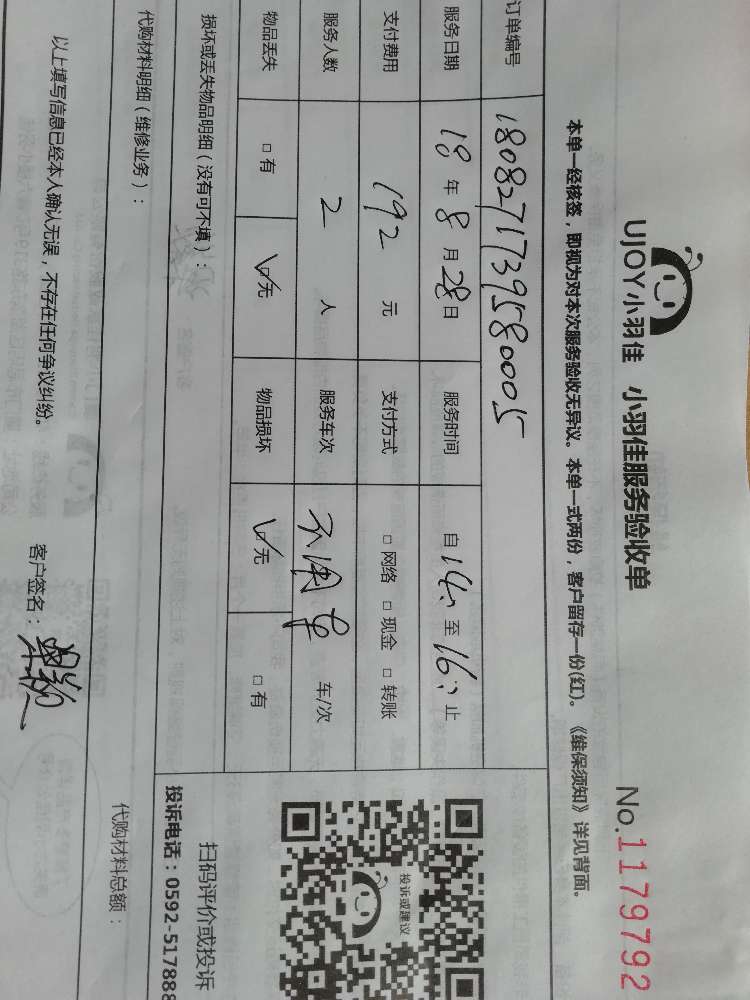 UJOY小羽佳 小羽佳服务验收单
No.1179792
本单一经核签，即视为对本次服务验收无异议。本单一式两份，客户留存一份(红)。《维保须知》详见背面。
订单编号 180827173958005
服务日期 18年8月28日 服务时间 自14:至16:止
支付费用 192元 支付方式 □网络 □现金 □转账
服务人数 2人 服务车次 不用车 车/次
物品丢失 □有 ☑无 物品损坏 ☑无 □有
损坏或丢失物品明细（没有可不填）：
投诉或建议
扫码评价或投诉
投诉电话：0592-517888
代购材料明细（维修业务）： 代购材料总额：
以上填写信息已经本人确认无误，不存在任何争议纠纷。 客户签名：